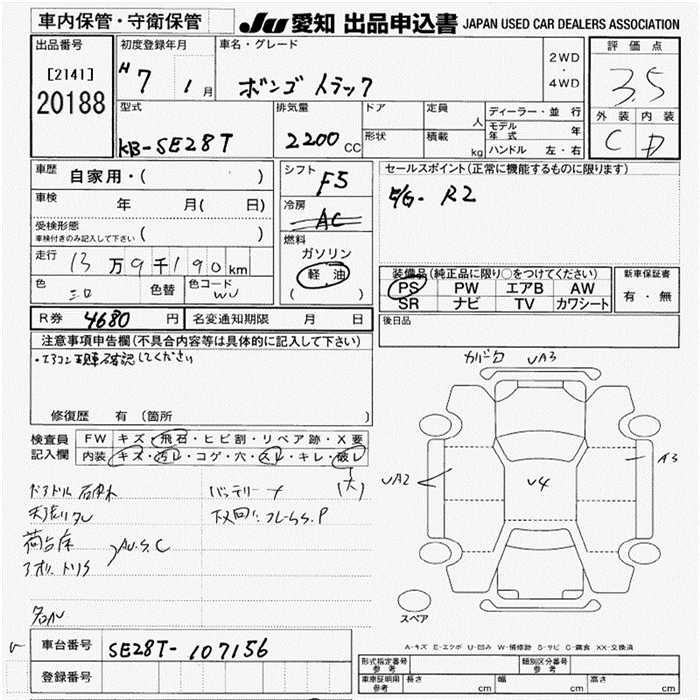 車内保管・守衛保管
JU 愛知 出品申込書 JAPAN USED CAR DEALERS ASSOCIATION
出品番号
[2141]
20188
初度登録年月
H 7 1 月
車名・グレード
ボンゴ トラック
2WD
・
4WD
評価点
3.5
外装 内装
C D
型式
KB-SE28T
排気量
2200 CC
ドア
定員
人
形状
積載
kg
ディーラー・並行
モデル年式 年
ハンドル 左・右
車歴
自家用・( )
車検
年 月( 日)
受検形態
車検付きのみ記入して下さい ( )
走行
13万9千190km
色
シロ
色替
色コード
WU
シフト
F5
冷房
AC
燃料
ガソリン
軽油
( )
セールスポイント(正常に機能するものに限ります)
R2
装備品(純正品に限り〇をつけてください)
PS PW エアB AW
SR ナビ TV カワシート
新車保証書
有・無
後日品
R券 4680 円
名変通知期限 月 日
注意事項申告欄(不具合内容等は具体的に記入して下さい)
・エアコン現車確認してください
修復歴 有(箇所 )
検査員
記入欄
FW キズ・飛石・ヒビ割・リペア跡・X要
内装 キズ・汚レ・コゲ・穴・スレ・キレ・破レ
(大)
バッテリーナ
下廻り
荷台床
AU.S.C
カバワ UA3
UA2
A3
U4
スペア
A-キズ E-エクボ U-凹み W-補修跡 S-サビ C-腐食 XX-交換済
車台番号
SE28T-107156
登録番号
形式指定番号
参考
類別区分番号
参考
車庫証明用
参考
長さ cm
幅 cm
高さ cm